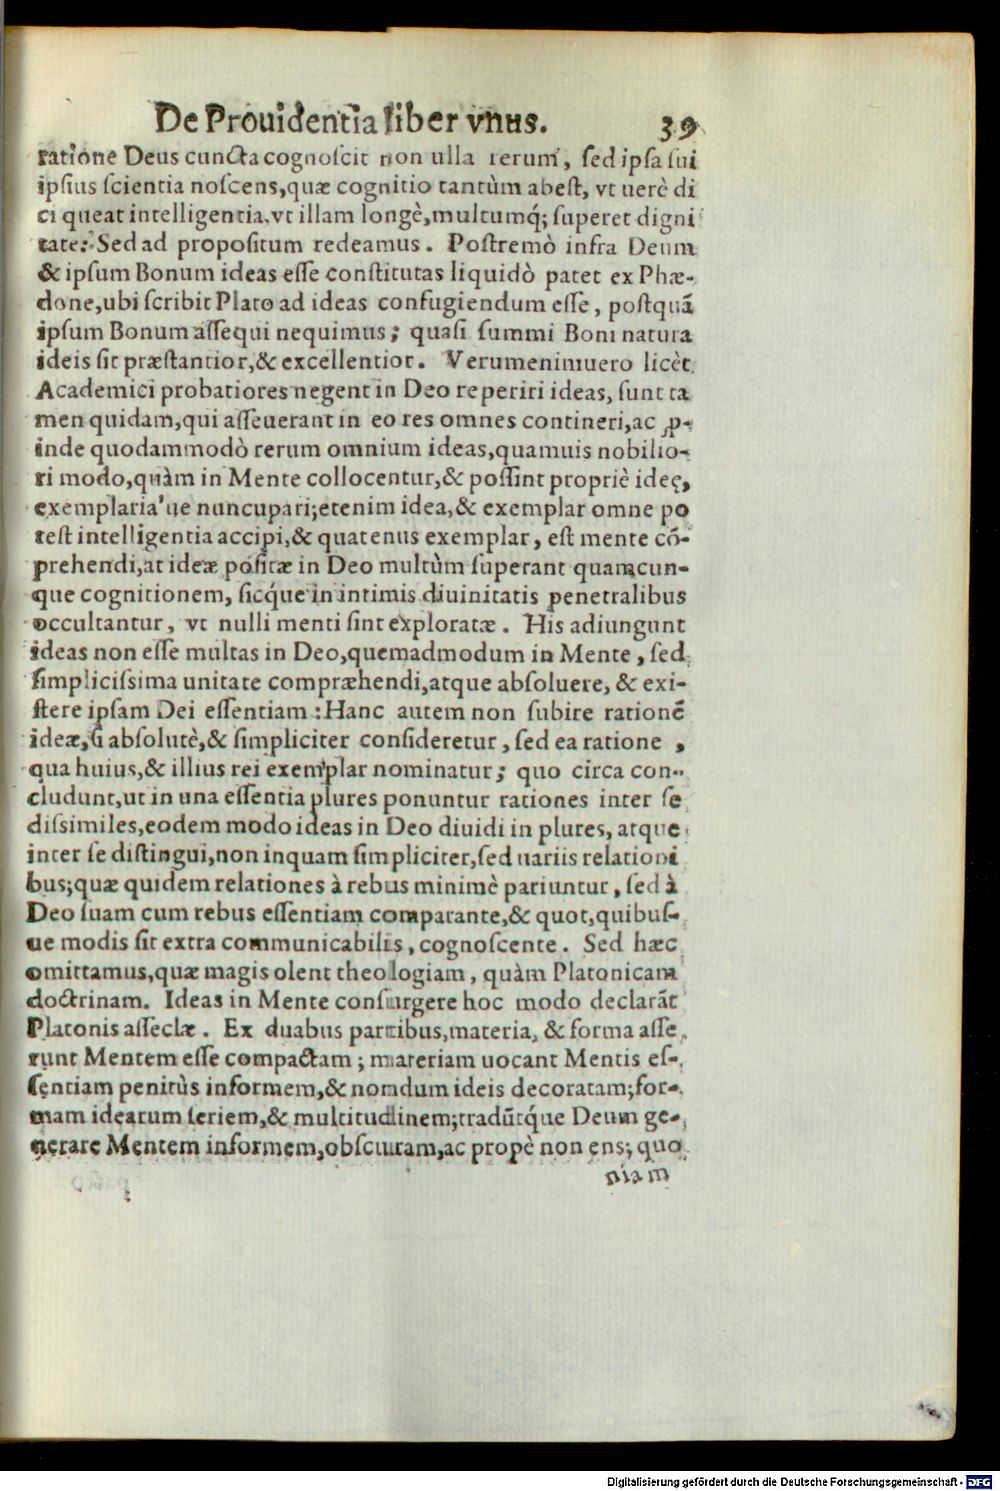 De Prouidentia liber vnus. 39
ratione Deus cuncta cognoſcit non ulla rerum, ſed ipſa ſui
ipſius ſcientia noſcens,quæ cognitio tantùm abeſt, vt uerè di
ci queat intelligentia,vt illam longè,multumq́; ſuperet digni
tate: Sed ad propoſitum redeamus. Poſtremò infra Deum
& ipſum Bonum ideas eſſe conſtitutas liquidò patet ex Phæ-
done,ubi ſcribit Plato ad ideas confugiendum eſſe, poſtquā
ipſum Bonum aſſequi nequimus; quaſi ſummi Boni natura
ideis ſit præſtantior,& excellentior. Verumenimuero licèt
Academici probatiores negent in Deo reperiri ideas, ſunt ta
men quidam,qui aſſeuerant in eo res omnes contineri,ac ꝓ-
inde quodammodò rerum omnium ideas,quamuis nobilio-
ri modo,quàm in Mente collocentur,& poſſint propriè ideę,
exemplaria'ue nuncupari;etenim idea,& exemplar omne po
teſt intelligentia accipi,& quatenus exemplar, eſt mente cō-
prehendi,at ideæ poſitæ in Deo multùm ſuperant quamcun-
que cognitionem, ſicq́ue in intimis diuinitatis penetralibus
occultantur, vt nulli menti ſint exploratæ. His adiungunt
ideas non eſſe multas in Deo,quemadmodum in Mente, ſed
ſimpliciſsima unitate compræhendi,atque abſoluere, & exi-
ſtere ipſam Dei eſſentiam: Hanc autem non ſubire rationē
ideæ,ſi abſolutè,& ſimpliciter conſideretur, ſed ea ratione,
qua huius,& illius rei exemplar nominatur; quo circa con-
cludunt,ut in una eſſentia plures ponuntur rationes inter ſe
diſsimiles,eodem modo ideas in Deo diuidi in plures, atque
inter ſe diſtingui,non inquam ſimpliciter,ſed uariis relationi
bus;quæ quidem relationes à rebus minimè pariuntur, ſed à
Deo ſuam cum rebus eſſentiam comparante,& quot,quibuſ-
ue modis ſit extra communicabilis, cognoſcente. Sed hæc
omittamus,quæ magis olent theologiam, quàm Platonicam
doctrinam. Ideas in Mente conſurgere hoc modo declarāt
Platonis aſſeclæ. Ex duabus partibus,materia, & forma aſſe
runt Mentem eſſe compactam; materiam uocant Mentis eſ-
ſentiam penitùs informem,& nondum ideis decoratam;for-
mam idearum ſeriem,& multitudinem;tradūtq́ue Deum ge-
nerare Mentem informem,obſcuram,ac propè non ens; quo
niam
Digitalisierung gefördert durch die Deutsche Forschungsgemeinschaft - DFG